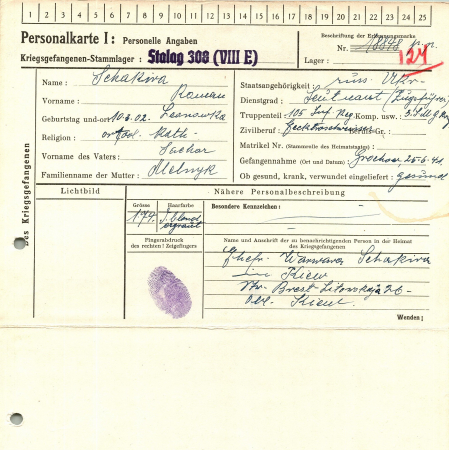 1 2 3 4 5 6 7 8 9 10 11 12 13 14 15 16 17 18 19 20 21 22 23 24 25
Personalkarte I: Personelle Angaben
Kriegsgefangenen-Stammlager: Stalag 308 (VIII E)
Beschriftung der Erkennungsmarke
Nr. 18848
Lager: 124
Des Kriegsgefangenen
Name: Schakira
Vorname: Roman
Geburtstag und -ort: 10.3.02.
Religion:
Vorname des Vaters: Sachar
Familienname der Mutter: Melnyk
Staatsangehörigkeit: russ. Ukr.
Dienstgrad: Leutnant (Zugführer)
Truppenteil: 105 Inf. Reg. Komp. usw.:
Zivilberuf: Berufs-Gr.:
Matrikel Nr. (Stammrolle des Heimatstaates):
Gefangennahme (Ort und Datum): 25.6.41
Ob gesund, krank, verwundet eingeliefert: gesund
Lichtbild
Nähere Personalbeschreibung
Grösse
174
Haarfarbe
Besondere Kennzeichen:
Fingerabdruck
des rechten! Zeigefingers
Name und Anschrift der zu benachrichtigenden Person in der Heimat
des Kriegsgefangenen
Ehefr. Warwara Schakira
in Kiew
Str. Brest Litowskaja 26
Kiew
Wenden!